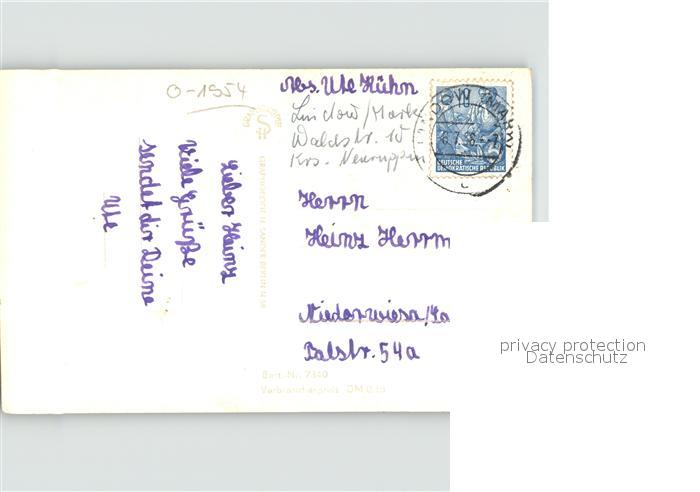 O-1954
Abs. Ute Kühn
Lindow/Mark
Waldstr. 10
Krs. Neuruppin
DEUTSCHE
DEMOKRATISCHE REPUBLIK
Lieber Heinz
Viele Grüße
sendet dir Deine
Ute
Herrn
Heinz Herrm
Niederwiesa/Sa
Talstr. 54a
Best.-Nr. 7340
Verbraucherpreis DM 0,15
privacy protection
Datenschutz